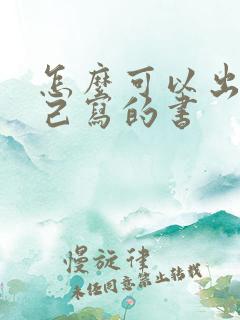 怎麼可以出
己寫的書
慢旋律
未经同意禁止转载